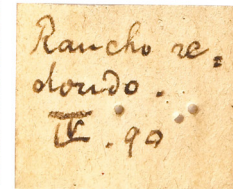 Rancho re=
dondo.
IV. 90